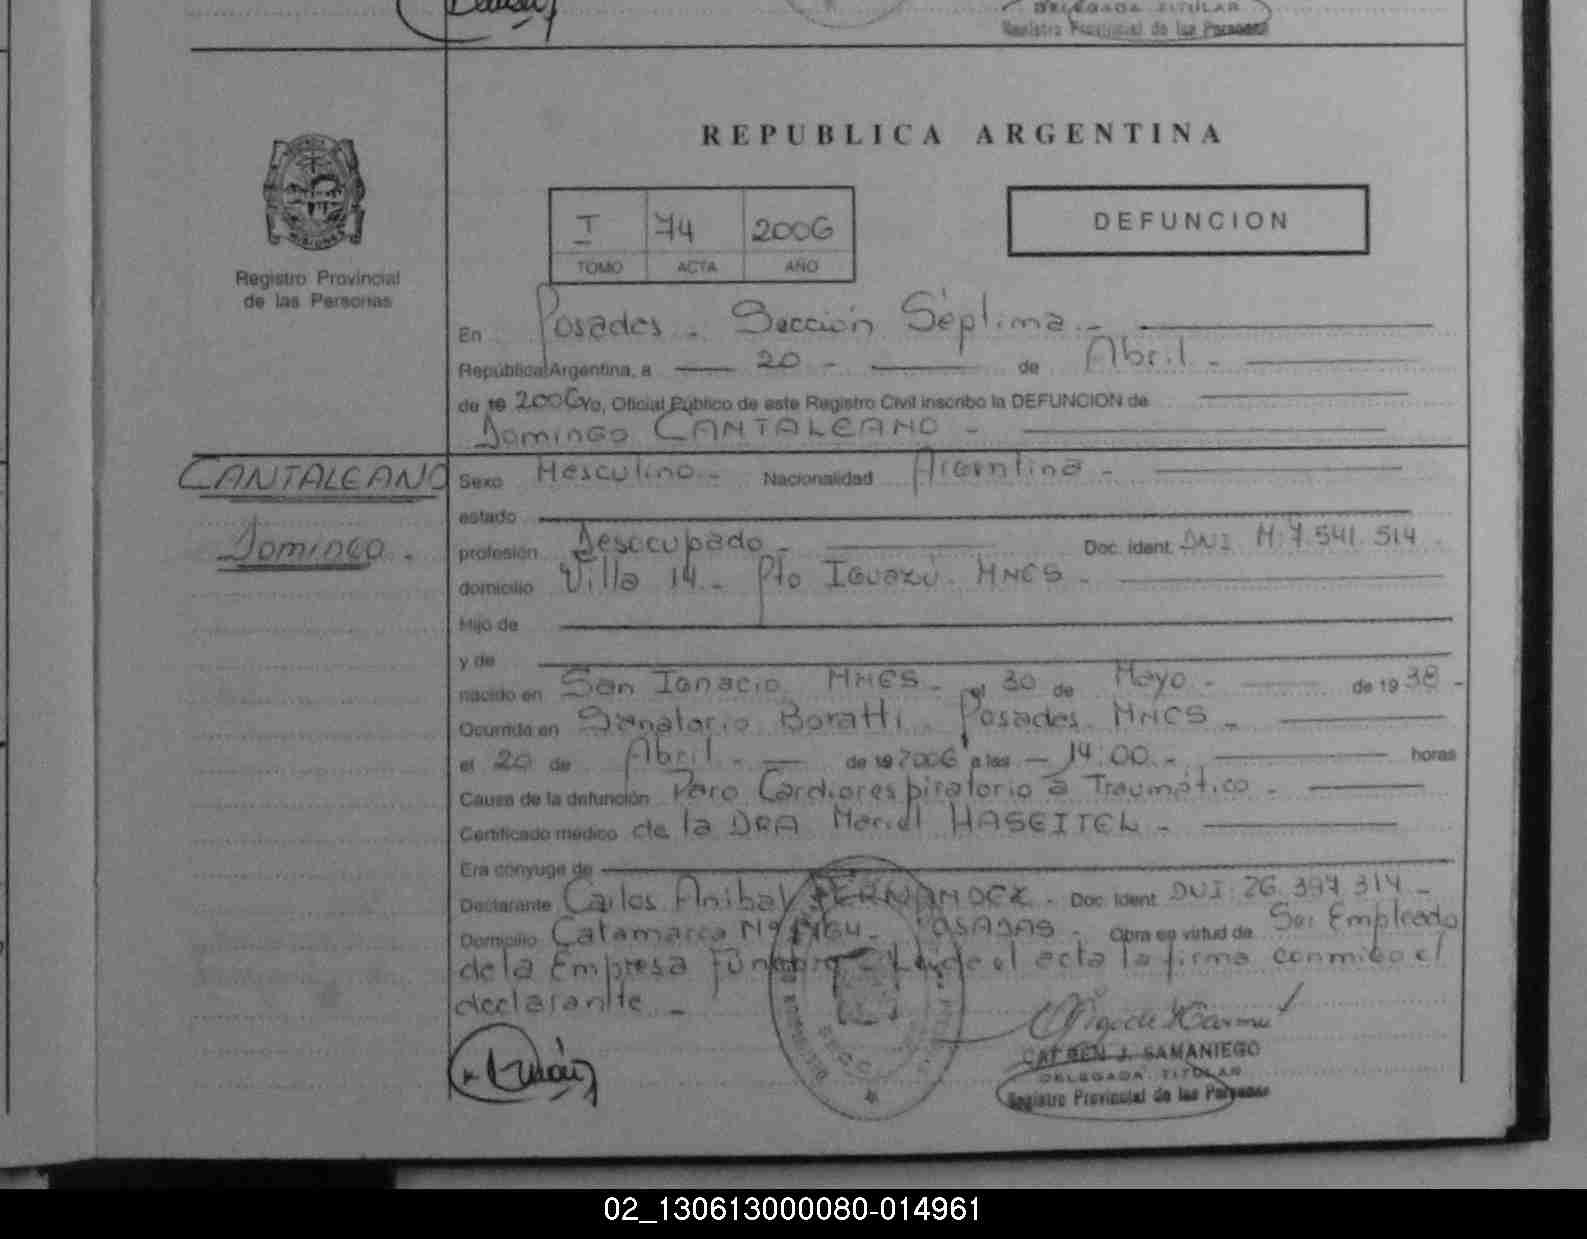 DELEGADA TITULAR
Registro Provincial de las Personas
REPUBLICA ARGENTINA
I 74 2006
TOMO ACTA AÑO
DEFUNCION
Registro Provincial
de las Personas
En Posadas - Sección Séptima.-
República Argentina, a 20 - de Abril -
de 19 2006 Yo, Oficial Público de este Registro Civil inscribo la DEFUNCION de
Domingo CANTALEANO -
CANTALEANO
Domingo.
Sexo Masculino.- Nacionalidad Argentina -
estado
profesión Desocupado - Doc. Ident. DNI M:7.541.514
domicilio Villa 14.- Pto IGUAZÚ. MNES -
Hijo de
y de
nacido en San Ignacio MNES - el 30 de Mayo - de 19 38 -
Ocurrida en Sanatorio Boratti. Posadas. MNES -
el 20 de Abril - de 19 2006 a las - 14:00.- horas
Causa de la defunción Paro Cardiorespiratorio a Traumático -
Certificado médico de la DRA Mariel HASEITEL -
Era cónyuge de
Declarante Carlos Anibal FERNANDEZ - Doc. Ident. DNI: 26.397.314 -
Domicilio Catamarca Nº POSADAS - Obra en virtud de Ser Empleado
de la Empresa el acta la firma conmigo el
declarante -
CARMEN J. SAMANIEGO
DELEGADA TITULAR
Registro Provincial de las Personas
02_130613000080-014961